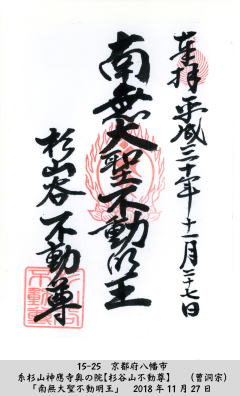 奉拝 平成三十年十一月二十七日
南無大聖不動明王
杉山谷不動尊
15-25　京都府八幡市
糸杉山神應寺奥の院【杉谷山不動尊】　（曹洞宗）
「南無大聖不動明王」　2018年11月27日